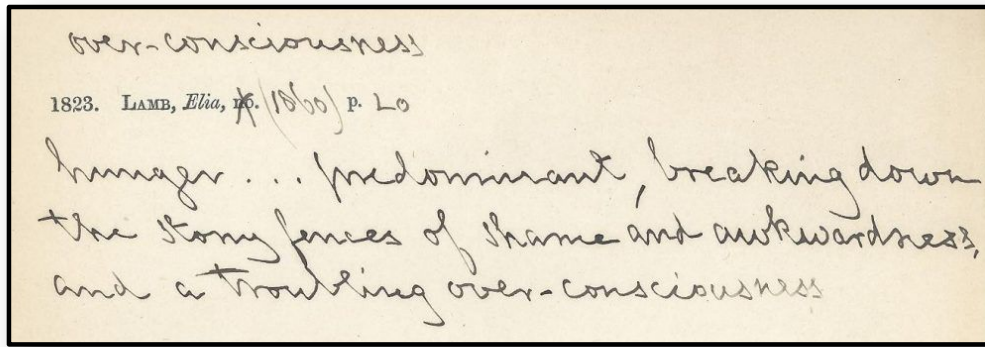 over-consciousness
1823. LAMB, Elia, (1860) p. 20
hunger . . . predominant, breaking down
the stony fences of shame and awkwardness,
and a troubling over-consciousness